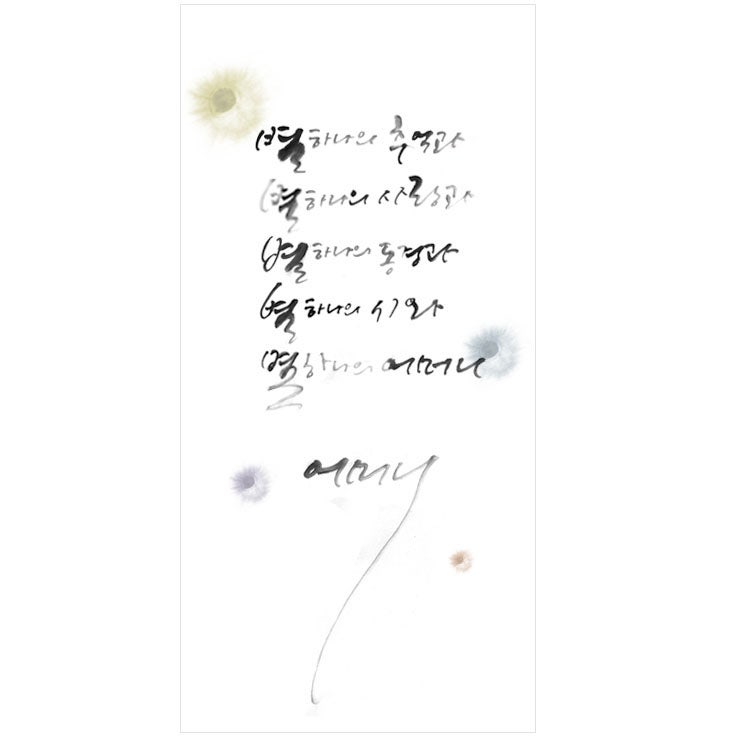 별하나의 추억과
별하나의 사랑과
별하나의 동경과
별하나의 시와
별하나의 어머니
어머니